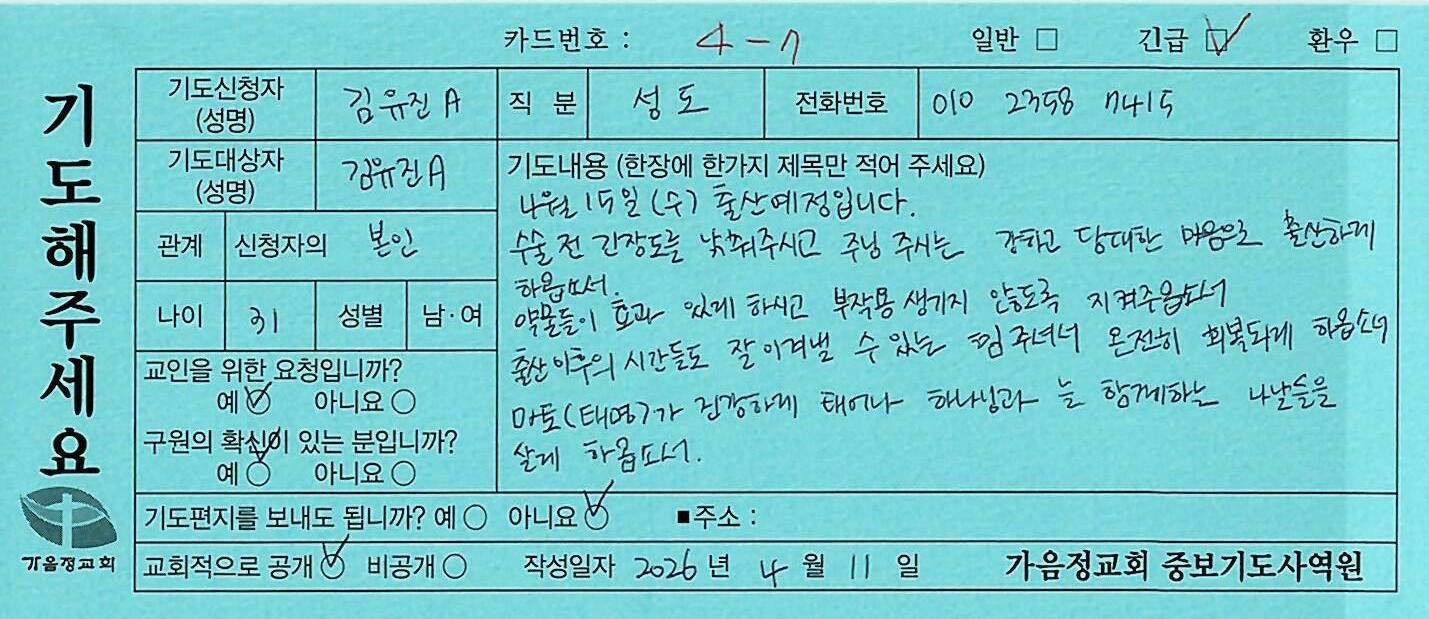 카드번호 : 4-7 일반 □ 긴급 ☑ 환우 □
기도해주세요
가음정교회
기도신청자 (성명) 김유진A 직 분 성도 전화번호 010 2358 7415
기도대상자 (성명) 김유진A
관계 신청자의 본인
나이 31 성별 남·여
교인을 위한 요청입니까?
예 ☑ 아니요 ○
구원의 확신이 있는 분입니까?
예 ☑ 아니요 ○
기도내용 (한장에 한가지 제목만 적어 주세요)
4월 15일 (수) 출산예정입니다.
수술 전 긴장도를 낮춰주시고 주님 주시는 강하고 담대한 마음으로 출산하게
하옵소서.
약물들이 효과 있게 하시고 부작용 생기지 않도록 지켜주옵소서
출산이후의 시간들도 잘 이겨낼 수 있는 힘 주셔서 온전히 회복되게 하옵소서
마토(태명)가 건강하게 태어나 하나님과 늘 함께하는 나날들을
살게 하옵소서.
기도편지를 보내도 됩니까? 예 ○ 아니요 ☑ ■주소 :
교회적으로 공개 ☑ 비공개 ○ 작성일자 2026 년 4 월 11 일 가음정교회 중보기도사역원